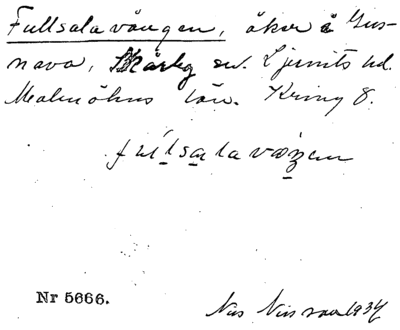 Fullsalavången, åker å Gus-
nava, Skårby sn. Ljunits hd.
Malmöhus län. Kring 8.
fulsalavæŋen
Nr 5666.
Nils Nilsson 1934